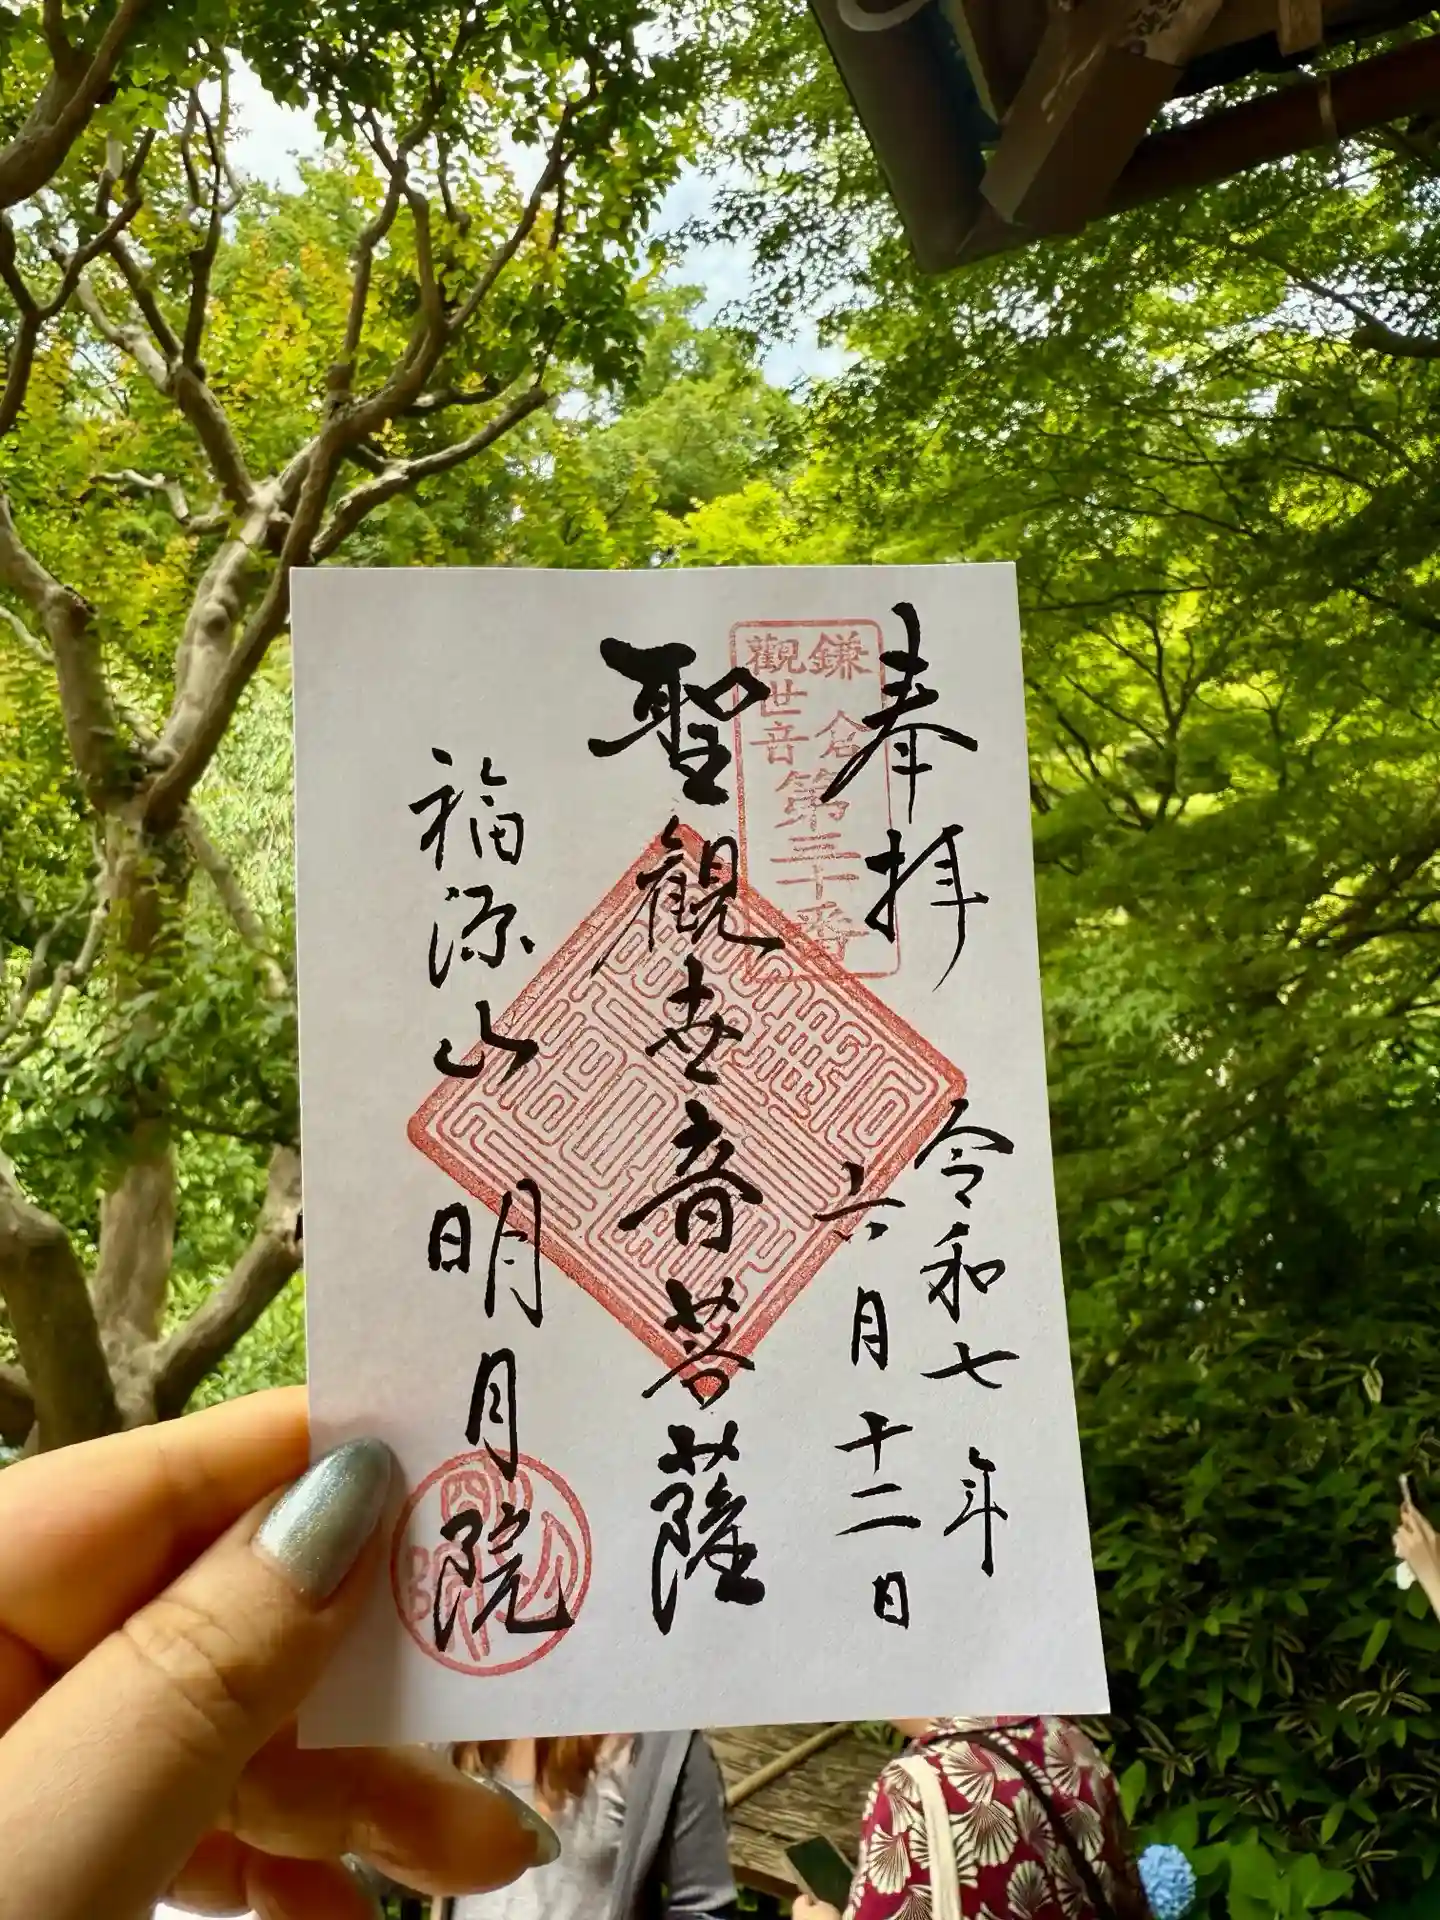 奉拝
令和七年
六月十二日
鎌倉
観世音
第三十番
聖觀世音菩薩
福源山明月院